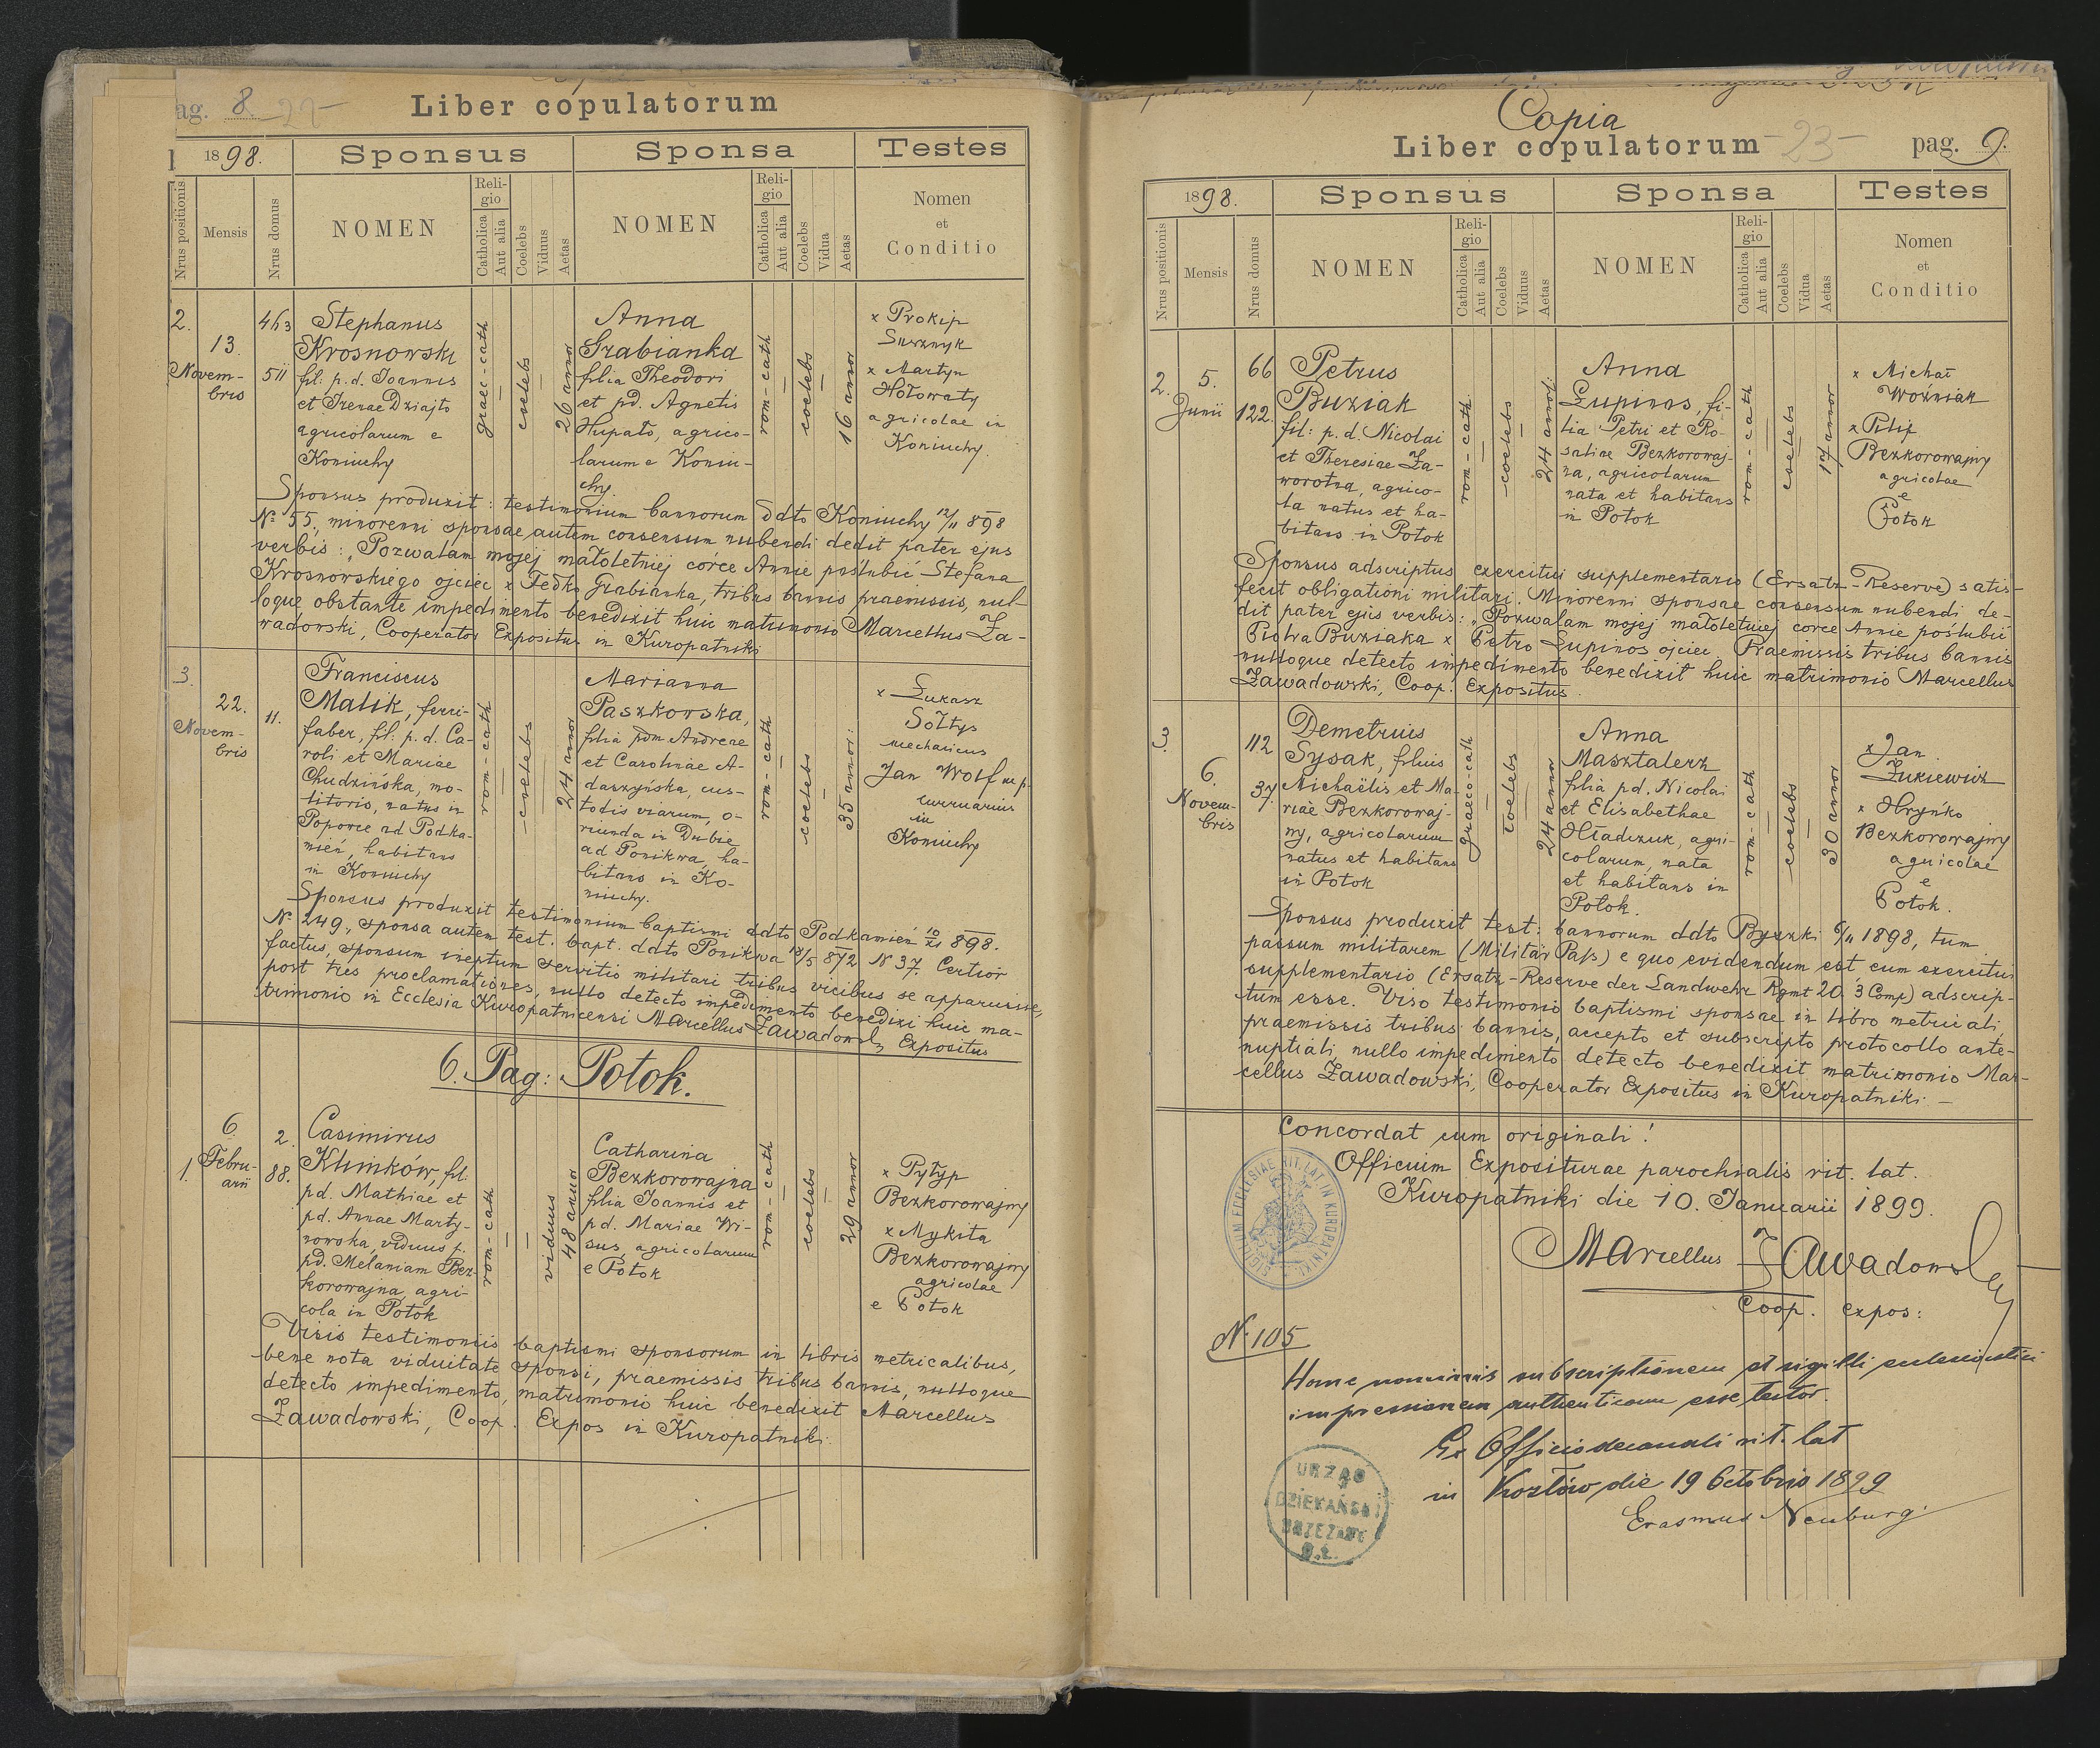 pag. 8. 22
Liber copulatorum
1898.
Sponsus
Sponsa
Testes
Nrus positionis
Mensis
Nrus domus
NOMEN
Religio
Catholica
Aut alia
Coelebs
Viduus
Aetas
NOMEN
Religio
Catholica
Aut alia
Coelebs
Vidua
Aetas
Nomen
et
Conditio
2.
13.
Novem-
bris
463
511
Stephanus
Krosnowski
fil: p. d. Joannis
et Irenae Dziajło
agricolarum e
Koniuchy
graec-cath
coelebs
26 annor
Anna
Grabianka
filia Theodori
et pd. Agnetis
Hupało, agrico-
larum e Koniu-
chy
rom-cath
coelebs
16 annor
x Prokip
x Martyn
Hołowaty
agricolae in
Koniuchy.
Sponsus produxit: testimonium bannorum ddto Koniuchy 12/11 898
No 55, minorenni sponsae autem consensum nubendi dedit pater ejus
verbis: "Pozwalam mojej małoletniej córce Annie poślubić Stefana
Krosnowskiego ojciec x Fedko Grabianka, tribus bannis praemissis, nul-
loque obstante impedimento benedixit huic matrimonio Marcellus Za-
wadowski, Cooperator Expositus in Kuropatniki
3.
22.
Novem-
bris
11.
Franciscus
Malik, ferri-
faber, fil: p. d. Ca-
roli et Mariae
Chudzińska, mo-
litoris, natus in
Poporce ad Podka-
mień, habitans
in Koniuchy
rom-cath
coelebs
24 annor
Marianna
Paszkowska,
filia pdm Andreae
et Carolinae A-
daszyńska, cus-
todis viarum, o-
riunda in Dubie
ad Ponikwa, ha-
bitans in Ko-
niuchy.
rom-cath
coelebs
35 annor:
x Łukasz
Sołtys
mechanicus
Jan Wolf mp
curruarius
in
Koniuchy
Sponsus produxit testimonium baptismi ddto Podkamień 10/XI 898.
No 249, sponsa autem test. bapt. ddto Ponikwa 18/5 872 N 37. Certior
factus, sponsum ineptum servitio militari tribus vicibus se apparuisse,
post tres proclamationes, nullo detecto impedimento benedixi huic ma-
trimonio in Ecclesia Kuropatnicensi Marcellus Zawadowski Expositus
6. Pag: Potok.
1.
6.
Febru-
arii
2.
88.
Casimirus
Klimków, fil.
pd. Mathiae et
pd. Annae Marty-
nowska, viduus p.
pd. Melaniam Bez-
korowajna, agri-
cola in Potok
rom-cath
viduus
48 annor
Catharina
Bezkorowajna
filia Joannis et
pd. Mariae Wi-
sus, agricolarum
e Potok
rom-cath
coelebs
29 annor
x Pyłyp
Bezkorowajny
x Mykita
Bezkorowajny
agricolae
e Potok
Visis testimoniis baptismi sponsorum in libris metricalibus,
bene nota viduitate sponsi, praemissis tribus bannis, nulloque
detecto impedimento, matrimonio huic benedixit Marcellus
Zawadowski, Coop. Expos in Kuropatniki.
Copia
Liber copulatorum
23
pag. 9.
1898.
Sponsus
Sponsa
Testes
Nrus positionis
Mensis
Nrus domus
NOMEN
Religio
Catholica
Aut alia
Coelebs
Viduus
Aetas
NOMEN
Religio
Catholica
Aut alia
Coelebs
Vidua
Aetas
Nomen
et
Conditio
2.
5.
Junii
66
122.
Petrus
Buziak
fil: p. d. Nicolai
et Theresiae Za-
worotna, agrico-
la natus et ha-
bitans in Potok
rom-cath
coelebs
24 annor:
Anna
Łupinos, fi-
lia Petri et Ro-
saliae Bezkorowaj-
na, agricolarum
nata et habitans
in Potok
rom-cath
coelebs
17 annor
x Michał
Woźniak
x Pilip
Bezkorowajny
agricolae
e
Potok
Sponsus adscriptus exercitui supplementario (Ersatz-Reserve) satis-
fecit obligationi militari. Minorenni sponsae consensum nubendi de-
dit pater ejus verbis: "Pozwalam mojej małoletniej corce Annie poślubić
Piotra Buziaka x Petro Łupinos ojciec. Praemissis tribus bannis
nulloque detecto impedimento benedixit huic matrimonio Marcellus
Zawadowski, Coop. Expositus.
3.
6.
Novem-
bris
112
37.
Demetrius
Sysak, filius
Michaëlis et Ma-
riae Bezkorowaj-
ny, agricolarum
natus et habitans
in Potok
graeco-cath
coelebs
24 annor
Anna
Masztalerz
filia pd. Nicolai
et Elisabethae
Hładczuk, agri-
colarum, nata
et habitans in
Potok.
rom-cath
coelebs
30 annor
x Jan
Żukiewicz
x Hryńko
Bezkorowajny
agricolae
e
Potok.
Sponsus produxit test: bannorum ddto Byszki 6/11 1898, tum
passum militarem (Militär Paß) e quo evidendum est eum exercitui
supplementario (Ersatz-Reserve der Landwehr Rgmt 20. 3 Comp) adscrip-
tum esse. Viso testimonio baptismi sponsae in libro metricali,
praemissis tribus bannis, accepto et subscripto protocollo ante-
nuptiali, nullo impedimento detecto benedixit matrimonio Mar-
cellus Zawadowski, Cooperator Expositus in Kuropatniki.—
Concordat cum originali!
Officium Expositurae parochialis rit. lat.
Kuropatniki die 10. Januarii 1899.
Marcellus Zawadowski
Coop. expos:
SIGILLUM ECCLESIAE RIT. LAT. IN KUROPATNIKI
N. 105
Hanc nominis subscriptionem et sigilli ecclesiastici
impressionem authenticam esse testor.
Ex Officio decanali rit. lat
in Kozłów die 19 Octobris 1899
Erasmus Neuburg
URZĄD
DZIEKAŃSKI
BRZEŻANY
O.Ł.